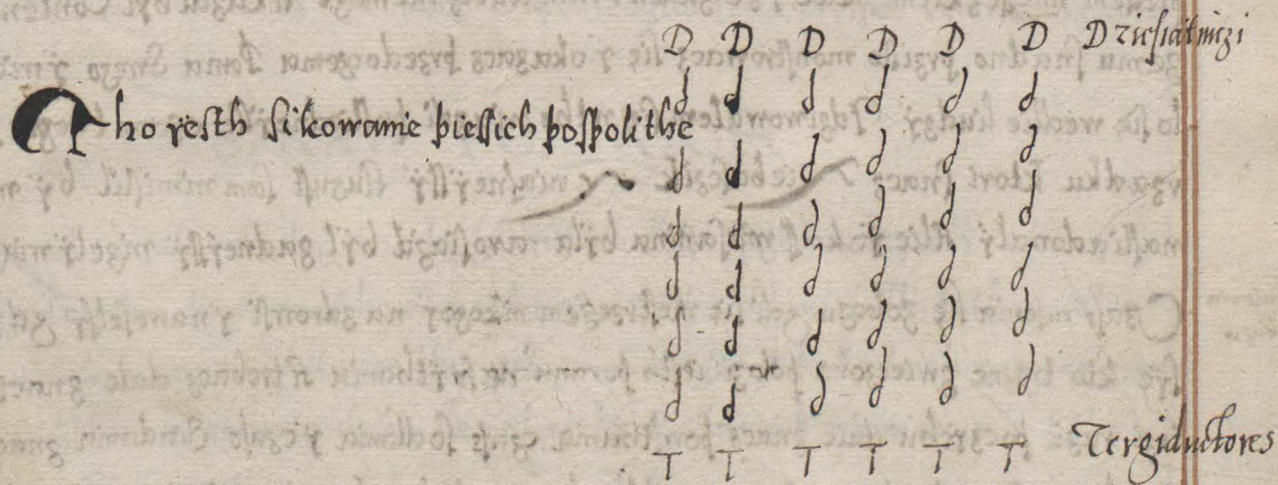 D D D D D D Dziesiatniczi
d d d d d d
Tho yesth sikowanie piessich pospolithe
d d d d d d
d d d d d d
d d d d d d
d d d d d d
d d d d d d
T T T T T T Tergiductores